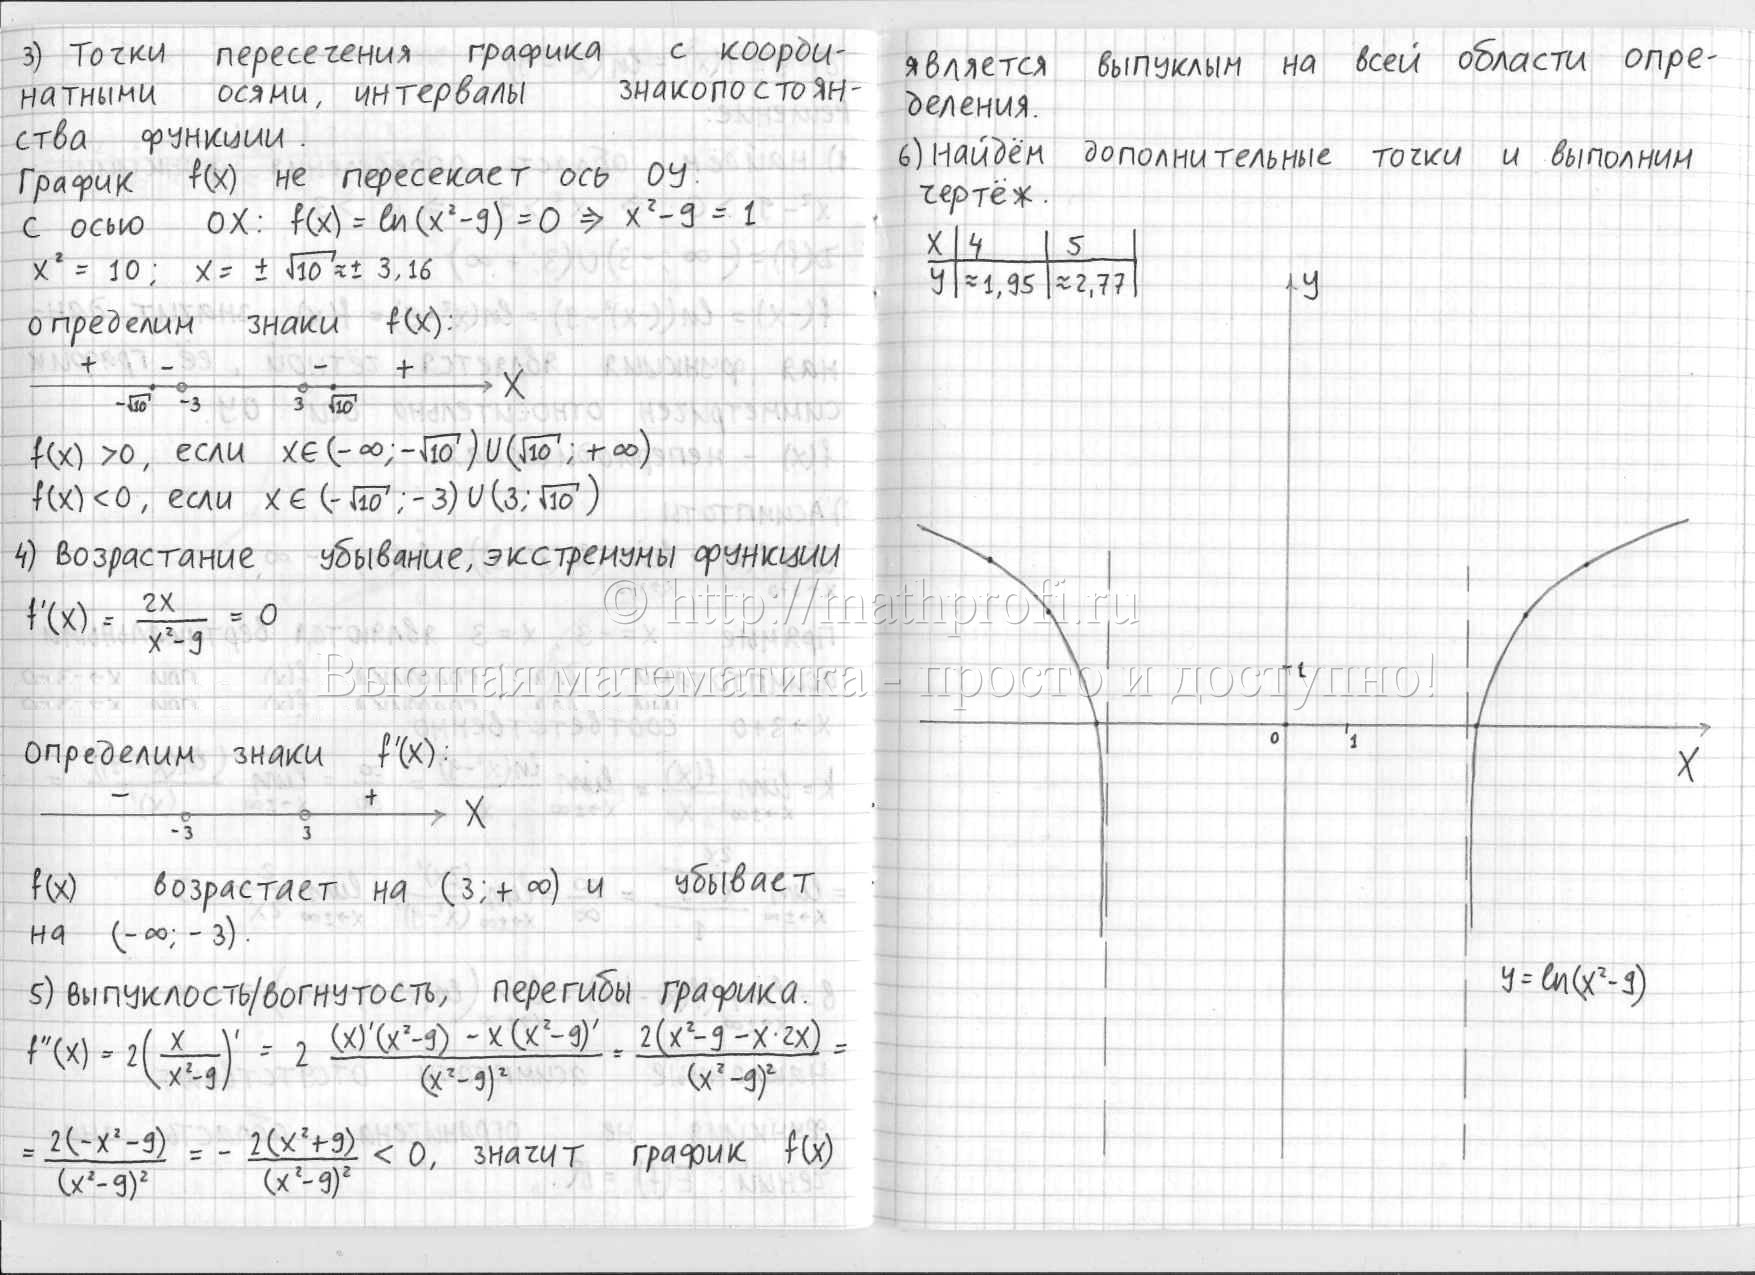 3) Точки пересечения графика с коорди-
натными осями, интервалы знакопостоян-
ства функции.
График f(x) не пересекает ось OY.
С осью OX: f(x) = ln(x²-9) = 0 ⇒ x²-9 = 1
x² = 10; x = ± √10 ≈ ± 3,16
Определим знаки f(x):
+ - - + X
-√10 -3 3 √10
f(x) >0, если x∈(-∞;-√10)∪(√10;+∞)
f(x)<0, если x∈(-√10;-3)∪(3;√10)
4) Возрастание убывание, экстремумы функции
f'(x) = 2x/(x²-9) = 0
Определим знаки f'(x):
- + X
-3 3
f(x) возрастает на (3;+∞) и убывает
на (-∞;-3).
5) Выпуклость/вогнутость, перегибы графика.
f''(x) = 2(x/(x²-9))' = 2 ((x)'(x²-9) - x(x²-9)')/(x²-9)² = 2(x²-9-x·2x)/(x²-9)² =
= 2(-x²-9)/(x²-9)² = - 2(x²+9)/(x²-9)² < 0, значит график f(x)
является выпуклым на всей области опре-
деления.
6) Найдём дополнительные точки и выполним
чертёж.
X 4 5
Y ≈1,95 ≈2,77
Y
1
0 1
X
y = ln(x²-9)
© http://mathprofi.ru
Высшая математика - просто и доступно!